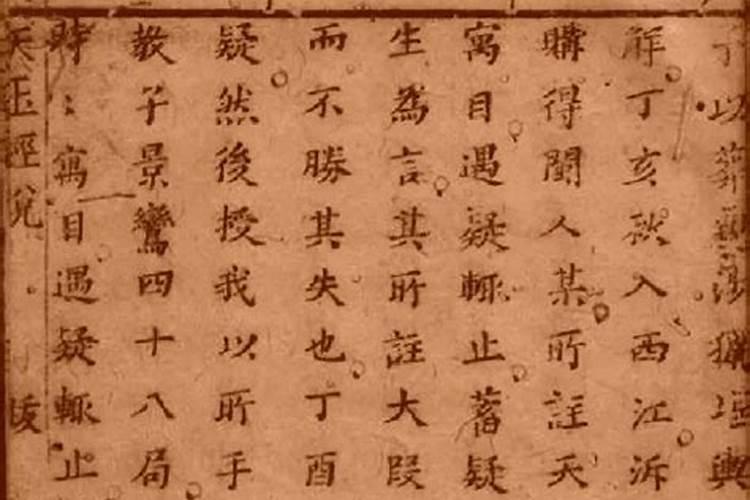 以葬親涉獵堪輿
解丁亥秋入西江泝
購得閩人某所註天
寓目遇疑輒止蓄疑
生為言其所註大段
而不勝其失也丁酉
疑然後授我以所手
教子景鸞四十八局
時〻寓目遇疑輒止
天玉經 後